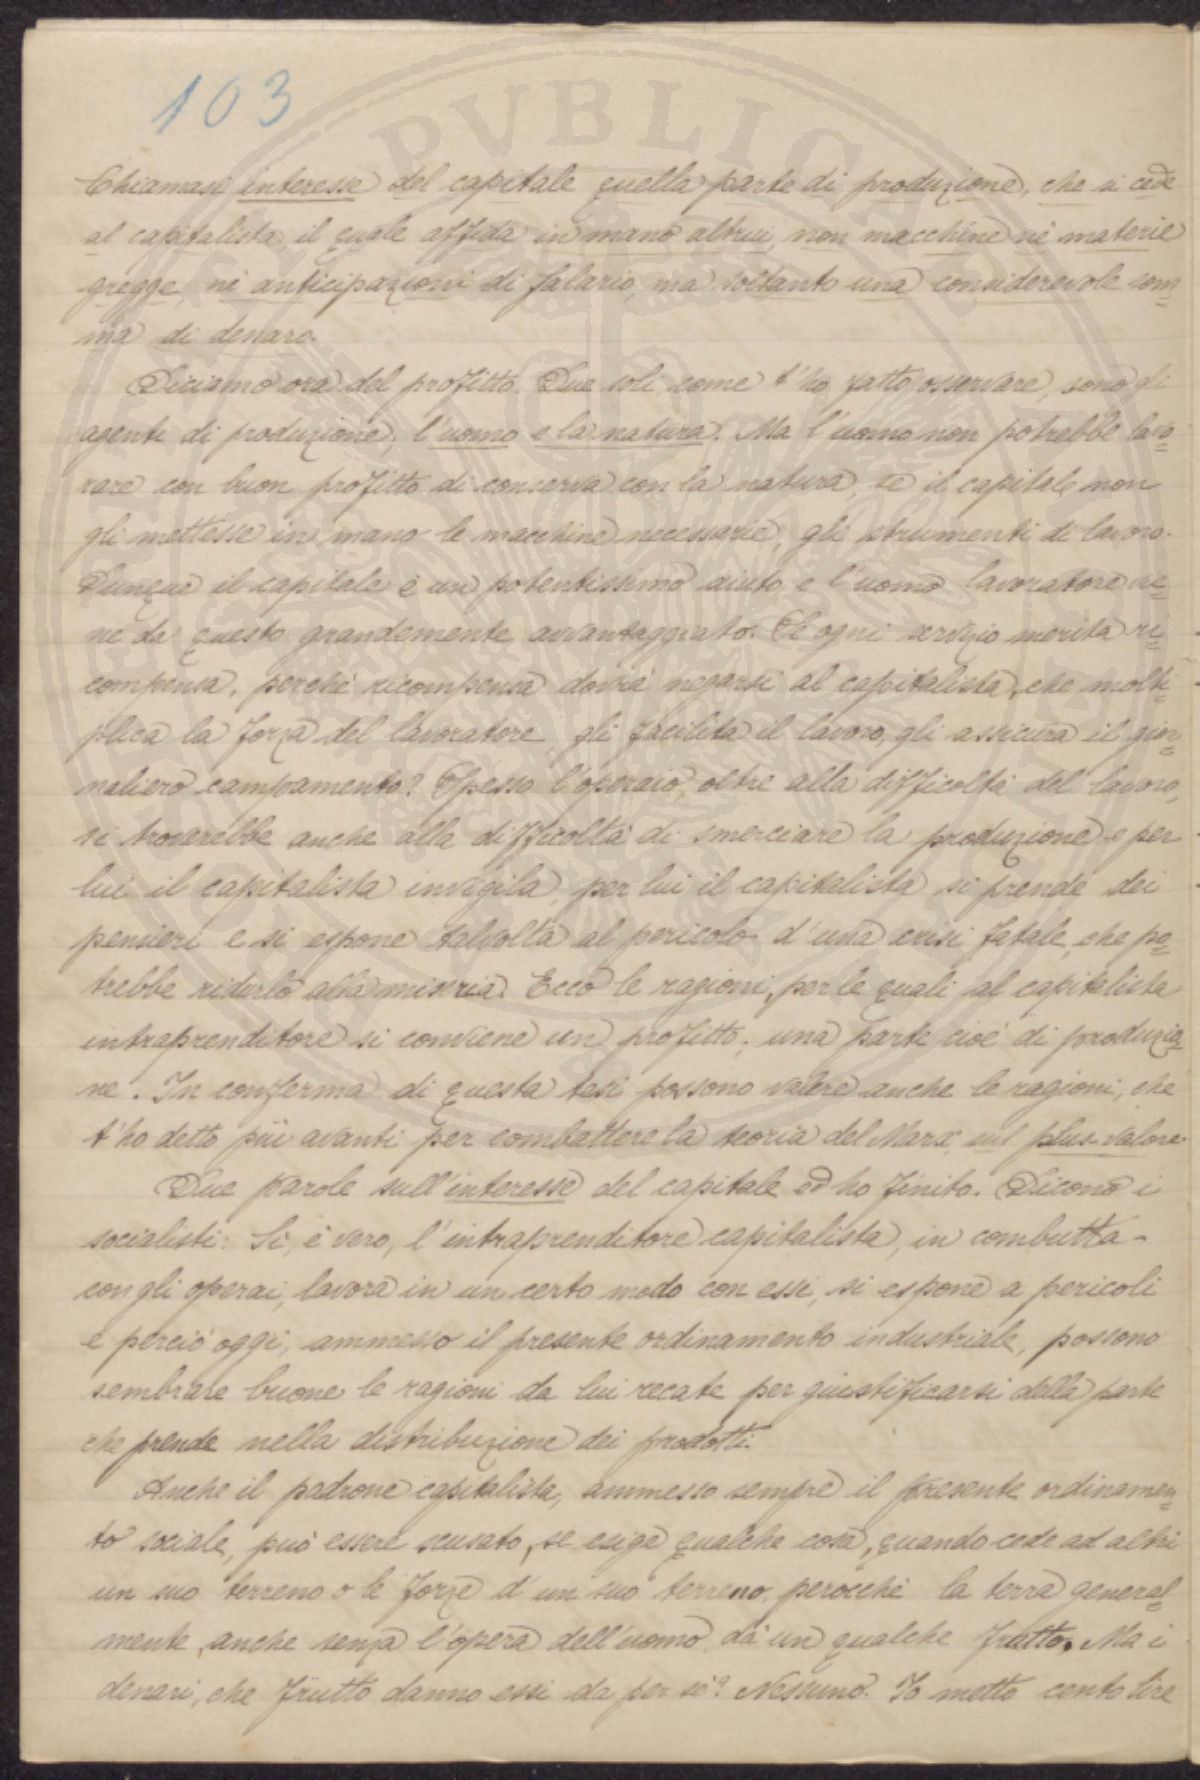 103
Chiamasi interesse del capitale quella parte di produzione, che si cede
al capitalista, il quale affida in mano altrui, non macchine nè materie
gregge, nè anticipazioni di salario, ma soltanto una considerevole som=
ma di denaro.
Diciamo ora del profitto. Due soli, come t'ho fatto osservare, sono gli
agenti di produzione, l'uomo e la natura. Ma l'uomo non potrebbe lavo=
rare con buon profitto di conserva con la natura, se il capitale non
gli mettesse in mano le macchine necessarie, gli strumenti di lavoro.
Dunque il capitale è un potentissimo aiuto e l'uomo lavoratore vie=
ne da questo grandemente avvantaggiato. Se ogni servizio merita ri=
compensa, perchè ricompensa dovrà negarsi al capitalista, che molti=
plica la forza del lavoratore, gli facilita il lavoro, gli assicura il gior=
naliero campamento? Spesso l'operaio, oltre alla difficoltà del lavoro,
si troverebbe anche alla difficoltà di smerciare la produzione e per
lui il capitalista invigila, per lui il capitalista si prende dei
pensieri e si espone talvolta al pericolo d'una crisi fatale, che po=
trebbe ridurlo alla miseria. Ecco le ragioni, per le quali al capitalista
intraprenditore si conviene un profitto, una parte cioè di produzio=
ne. In conferma di questa tesi possono valere anche le ragioni, che
t'ho detto più avanti per combattere la teoria del Marx sul plus-valore.
Due parole sull'interesse del capitale ed ho finito. Dicono i
socialisti: Si, è vero, l'intraprenditore capitalista, in combutta
con gli operai, lavora in un certo modo con essi, si espone a pericoli
e perciò oggi, ammesso il presente ordinamento industriale, possono
sembrare buone le ragioni da lui recate per giustificarsi della parte
che prende nella distribuzione dei prodotti.
Anche il padrone capitalista, ammesso sempre il presente ordinamen=
to sociale, può essere scusato, se esige qualche cosa, quando cede ad altri
un suo terreno o le forze d'un suo terreno, perocchè la terra general=
mente, anche senza l'opera dell'uomo, dà un qualche frutto. Ma i
denari, che frutto danno essi da per sè? Nessuno. Io metto cento lire